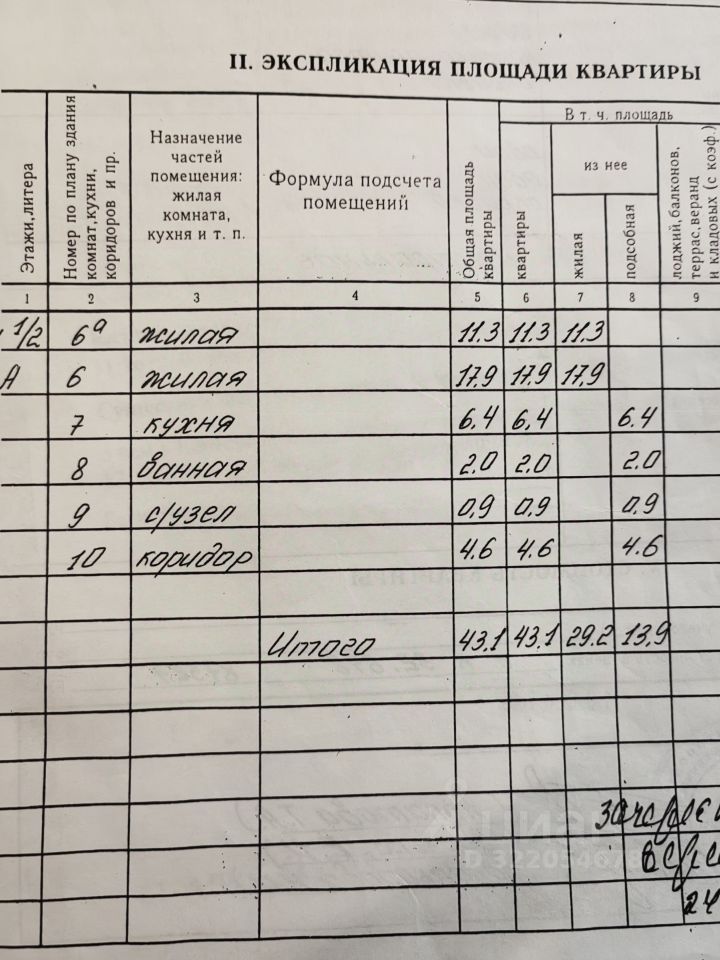 II. ЭКСПЛИКАЦИЯ ПЛОЩАДИ КВАРТИРЫ
Этажи, литера
Номер по плану здания комнат, кухни, коридоров и пр.
Назначение
частей
помещения:
жилая
комната,
кухня и т. п.
Формула подсчета
помещений
Общая площадь
квартиры
В т. ч. площадь
квартиры
из нее
жилая
подсобная
лоджий, балконов,
террас, веранд
и кладовых (с коэф.)
1 2 3 4 5 6 7 8 9
1/2 6а жилая 11.3 11.3 11.3
А 6 жилая 17,9 17,9 17,9
7 кухня 6,4 6,4 6.4
8 ванная 2.0 2.0 2.0
9 с/узел 0,9 0,9 0,9
10 коридор 4.6 4.6 4.6
Итого 43,1 43,1 29.2 13,9
24